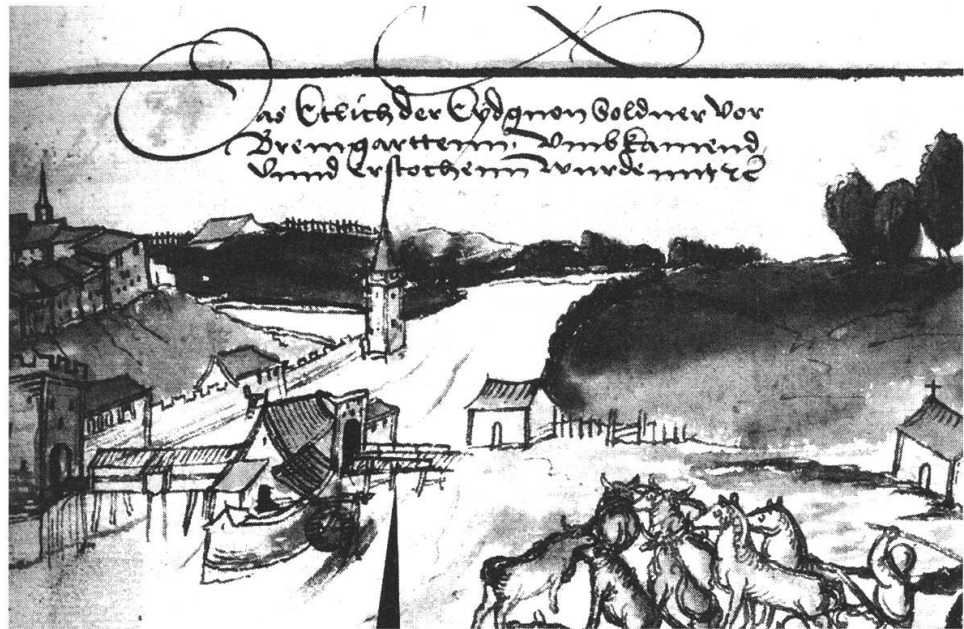 Das Ettlich der Eydgnon Soldner vor
Bremgarttenn, Vmbkamend,
Vnnd Erstochenn wurdenn